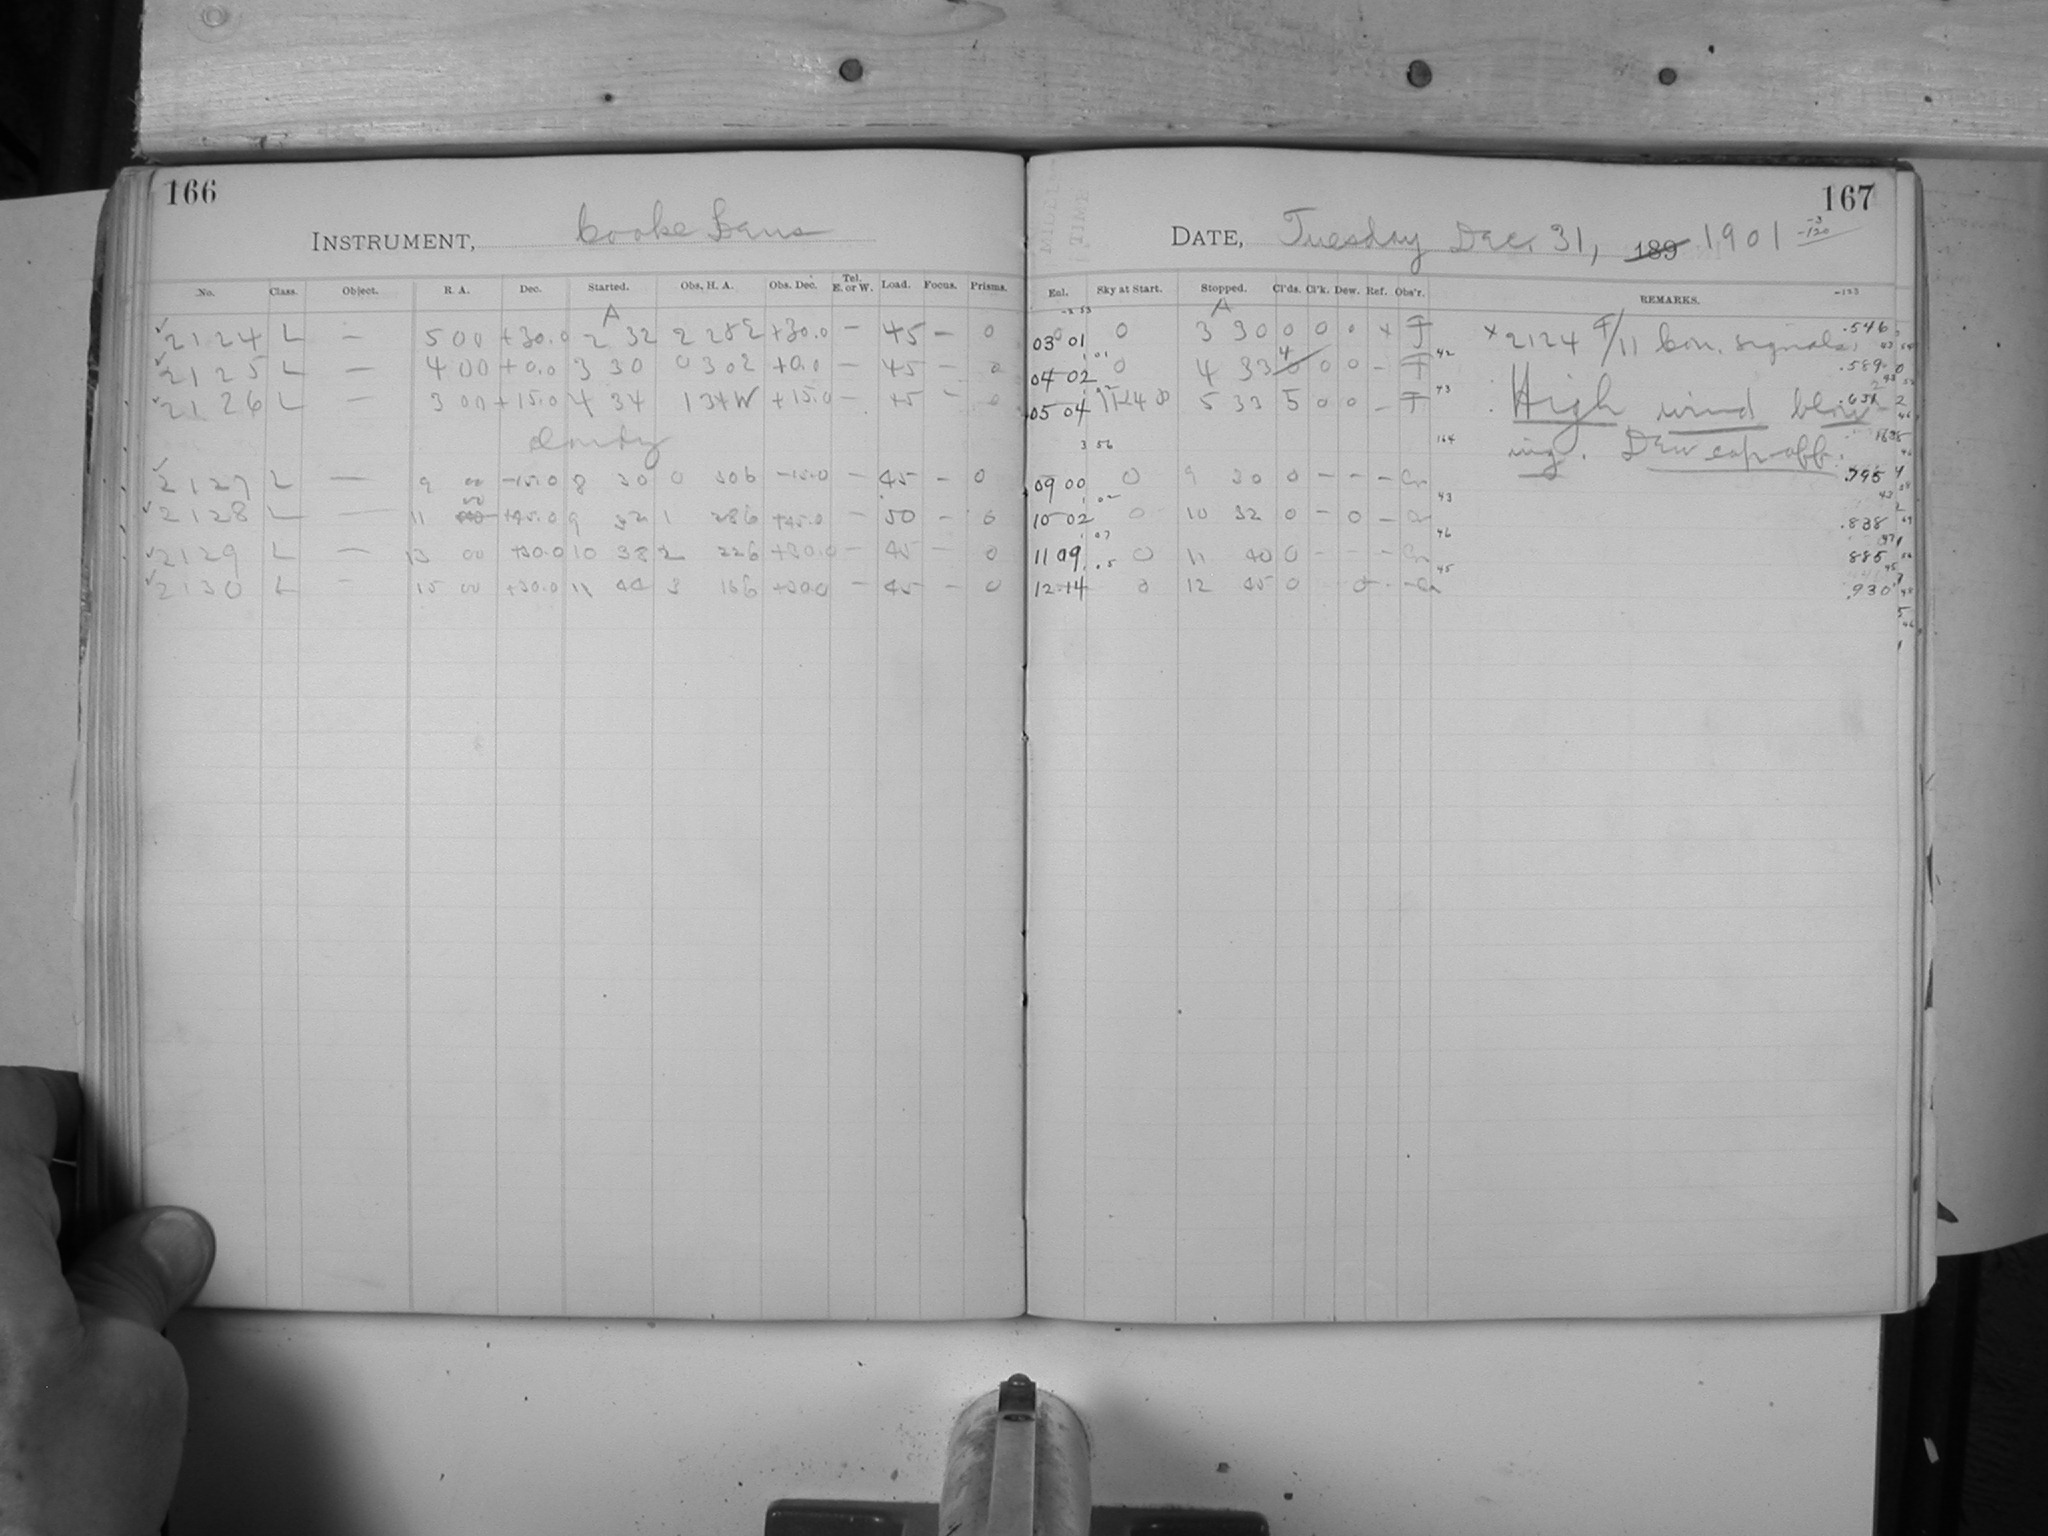 166
167
INSTRUMENT, Cooke Lens
DATE, Tuesday Dec. 31, 189 1901
-3
-120
No. Class. Object. R. A. Dec. Started. Obs. H. A. Obs. Dec. Tel. E. or W. Load. Focus. Prisms. Enl. Sky at Start. Stopped. Cl'ds. Cl'k. Dew. Ref. Obs'r. REMARKS. -123
A A
2124 L — 5 00 +30.0 2 32 2 28 E +30.0 — 45 — 0 03 01 0 3 30 0 0 0 x F x 2124 F/11 Con. signals. .546
2125 L — 4 00 +0.0 3 30 0 30 E +0.0 — 45 — 0 04 02 0 4 33 4 0 0 - F .589
2126 L — 3 00 +15.0 4 34 1 34 W +15.0 — 45 — 0 05 04 5 33 5 0 0 - F High wind blow-
cloudy ing. Dew cap off.
2127 L — 9 00 -15.0 8 30 0 30 E -15.0 — 45 - 0 09 00 0 9 30 0 - - - .795
2128 L — 11 00 +45.0 9 32 1 28 E +45.0 — 50 - 0 10 02 0 10 32 0 - 0 - .838
2129 L — 13 00 +30.0 10 38 2 22 E +30.0 — 45 — 0 11 09 0 11 40 0 - - - 885
2130 L - 15 00 +30.0 11 44 3 16 E +30.0 — 45 - 0 12 14 0 12 45 0 0 - .930